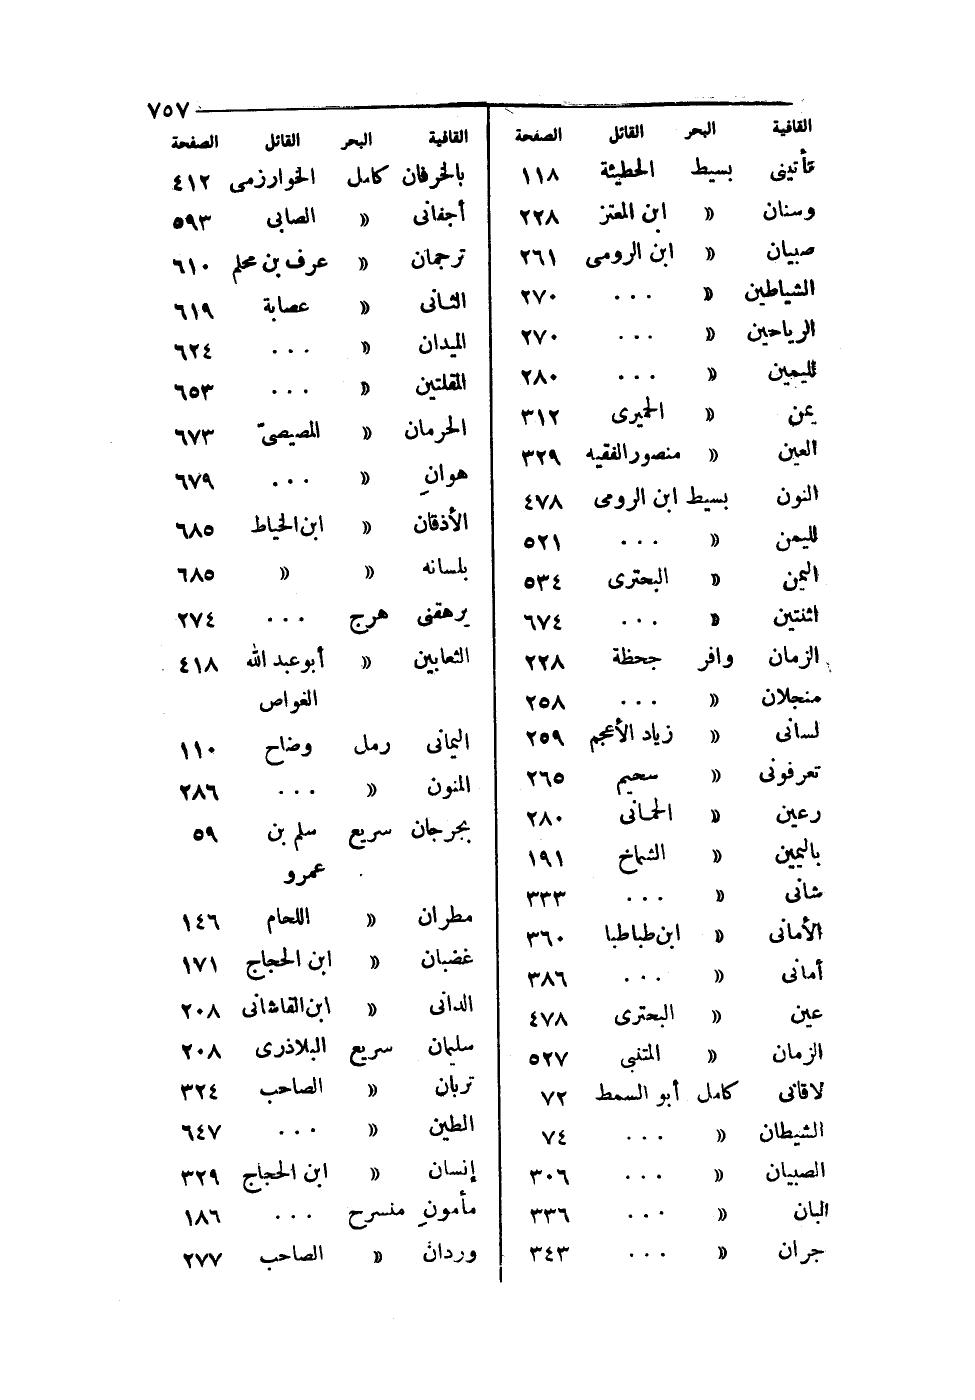 ٧٥٧
القافية البحر القائل الصفحة
تأتينى بسيط الحطيئة ١١٨
وسنان » ابن المعتز ٢٢٨
صبيان » ابن الرومى ٢٦١
الشياطين » ... ٢٧٠
الرياحين » ... ٢٧٠
لليمين » ... ٢٨٠
يمن » الحميرى ٣١٢
العين » منصور الفقيه ٣٢٩
النون بسيط ابن الرومى ٤٧٨
لليمن » ... ٥٢١
اليمن » البحترى ٥٣٤
اثنتين » ... ٦٧٤
الزمان وافر جحظة ٢٢٨
منجلان » ... ٢٥٨
لسانى » زياد الأعجم ٢٥٩
تعرفونى » سحيم ٢٦٥
رعين » الحمانى ٢٨٠
باليمين » الشماخ ١٩١
شانى » ... ٣٣٣
الأمانى » ابن طباطبا ٣٦٠
أمانى » ... ٣٨٦
عين » البحترى ٤٧٨
الزمان » المتنبى ٥٢٧
لاقانى كامل أبو السمط ٧٢
الشيطان » ... ٧٤
الصبيان » ... ٣٠٦
البان » ... ٣٣٦
جران » ... ٣٤٣
القافية البحر القائل الصفحة
بالخرفان كامل الخوارزمى ٤١٢
أجفانى » الصابى ٥٩٣
ترجمان » عرف بن محلم ٦١٠
الثانى » عصابة ٦١٩
الميدان » ... ٦٢٤
المقلتين » ... ٦٥٣
الحرمان » المصيصىّ ٦٧٣
هوانِ » ... ٦٧٩
الأذقان » ابن الخياط ٦٨٥
بلسانه » » ٦٨٥
يرهقنى هرج ... ٢٧٤
الثعابين » أبو عبد الله ٤١٨
الغواص
اليمانى رمل وضاح ١١٠
المنون » ... ٢٨٦
بجرجان سريع سلم بن ٥٩
عمرو
مطران » اللحام ١٤٦
غضبان » ابن الحجاج ١٧١
الدانى » ابن القاشانى ٢٠٨
سليمان سريع البلاذرى ٢٠٨
تربان » الصاحب ٣٢٤
الطين » ... ٦٤٧
إنسان » ابن الحجاج ٣٢٩
مأمونِ منسرح ... ١٨٦
وردان » الصاحب ٢٧٧